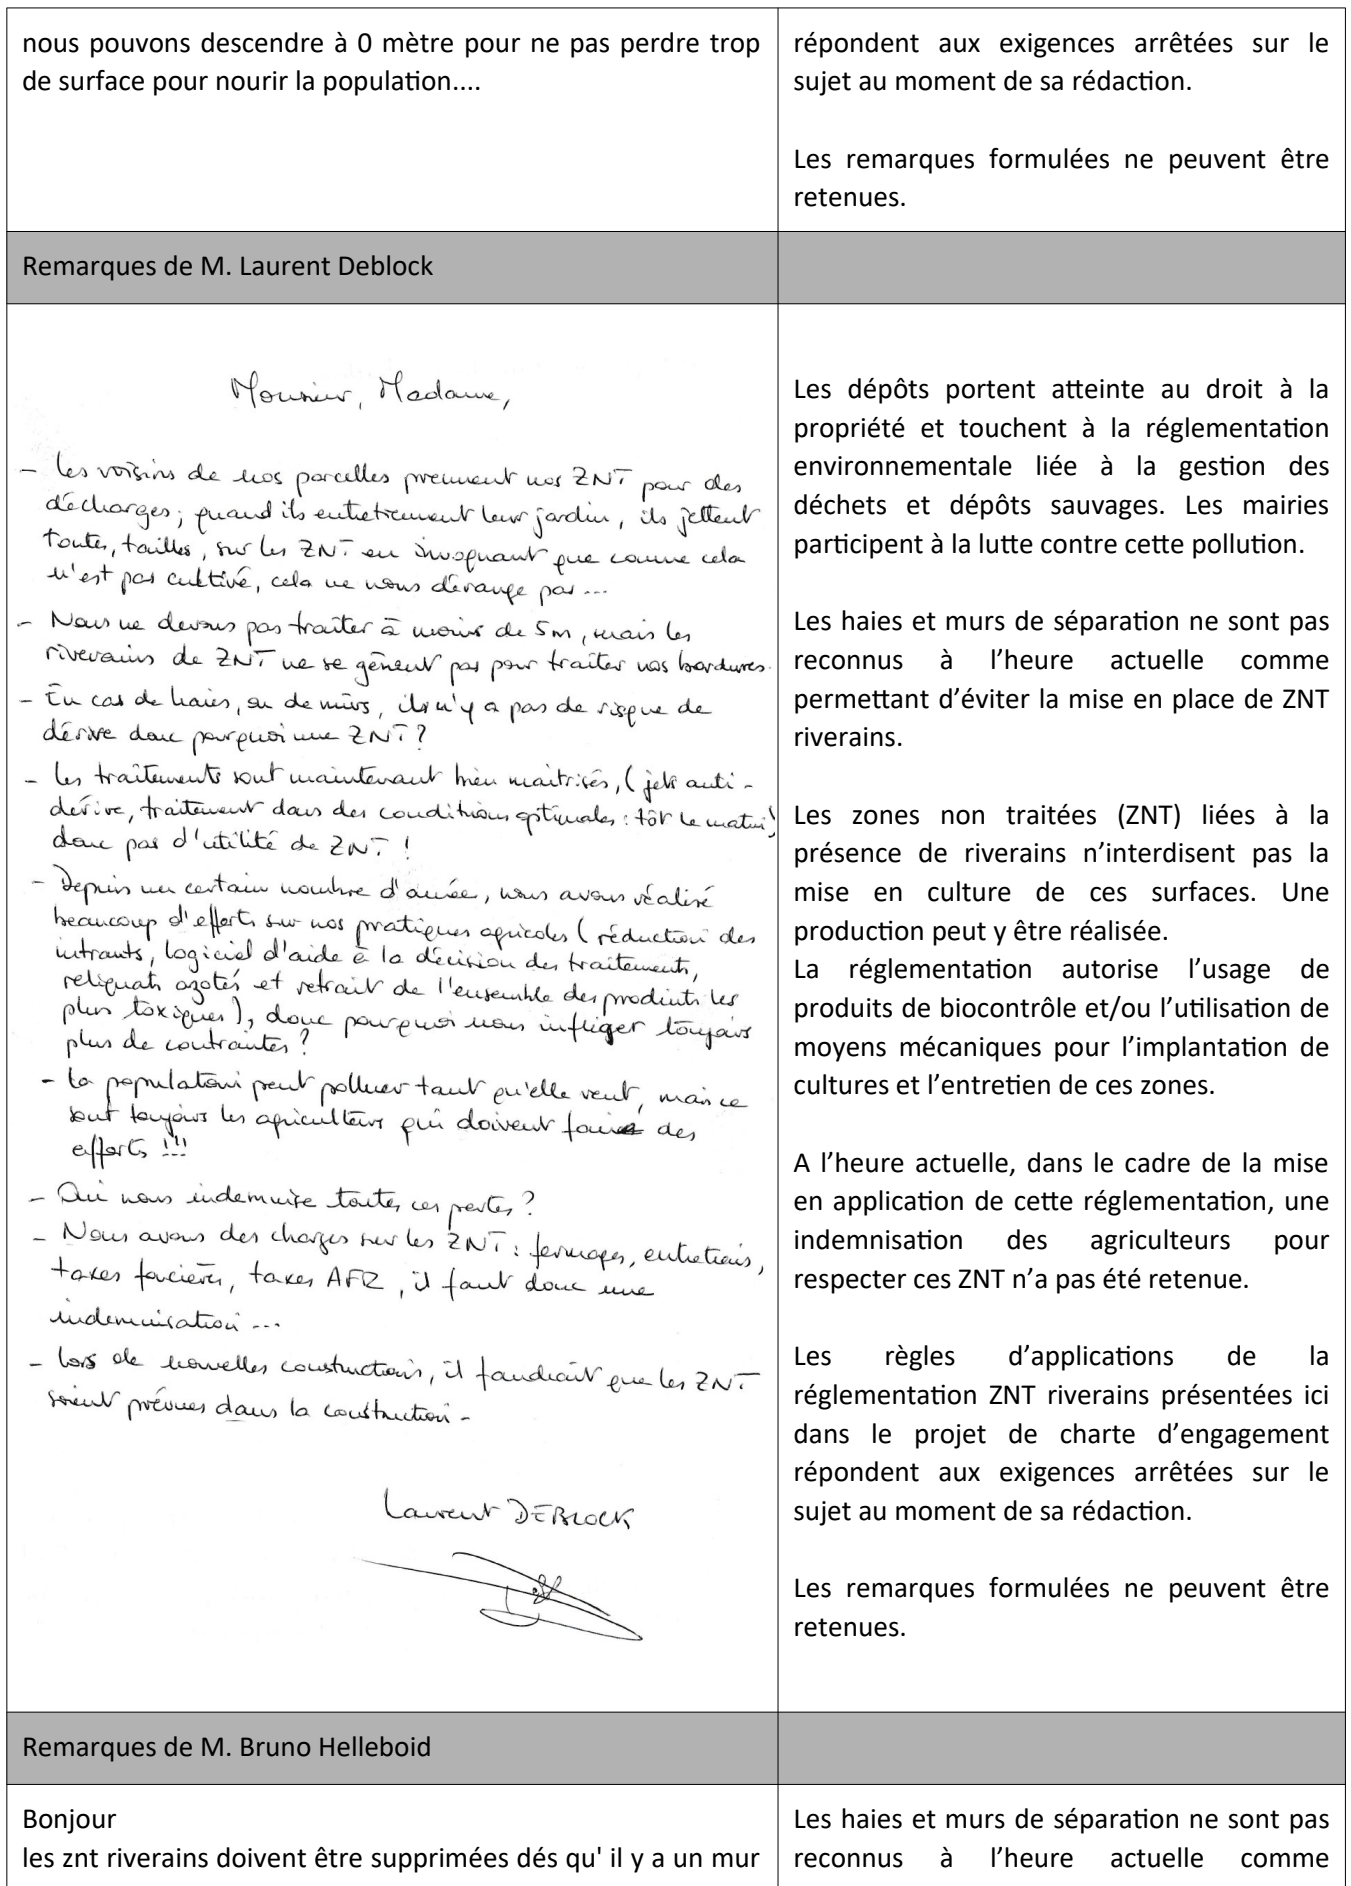 nous pouvons descendre à 0 mètre pour ne pas perdre trop
de surface pour nourir la population....
répondent aux exigences arrêtées sur le
sujet au moment de sa rédaction.
Les remarques formulées ne peuvent être
retenues.
Remarques de M. Laurent Deblock
Monsieur, Madame,
- Les voisins de nos parcelles prennent nos ZNT pour des
décharges; quand ils entretiennent leur jardin, ils jettent
tontes, tailles, sur les ZNT en invoquant que comme cela
n'est pas cultivé, cela ne nous dérange pas ...
- Nous ne devons pas traiter à moins de 5m, mais les
riverains de ZNT ne se gênent pas pour traiter nos bordures.
- En cas de haies, ou de murs, il n'y a pas de risque de
dérive donc pourquoi une ZNT ?
- Les traitements sont maintenant bien maitrisés, (jets anti-
dérive, traitement dans des conditions optimales : tôt le matin)
donc pas d'utilité de ZNT !
- Depuis un certain nombre d'année, nous avons réalisé
beaucoup d'efforts sur nos pratiques agricoles (réduction des
intrants, logiciel d'aide à la décision des traitements,
reliquats azotés et retrait de l'ensemble des produits les
plus toxiques), donc pourquoi nous infliger toujours
plus de contraintes ?
- La population peut polluer tant qu'elle veut, mais ce
sont toujours les agriculteurs qui doivent faire des
efforts !!!
- Qui nous indemnise toutes ces pertes ?
- Nous avons des charges sur les ZNT : fermages, entretiens,
taxes foncières, taxes AFR, il faut donc une
indemnisation ...
- Lors de nouvelles constructions, il faudrait que les ZNT
soient prévues dans la construction -
Laurent DEBLOCK
Les dépôts portent atteinte au droit à la
propriété et touchent à la réglementation
environnementale liée à la gestion des
déchets et dépôts sauvages. Les mairies
participent à la lutte contre cette pollution.
Les haies et murs de séparation ne sont pas
reconnus à l'heure actuelle comme
permettant d'éviter la mise en place de ZNT
riverains.
Les zones non traitées (ZNT) liées à la
présence de riverains n'interdisent pas la
mise en culture de ces surfaces. Une
production peut y être réalisée.
La réglementation autorise l'usage de
produits de biocontrôle et/ou l'utilisation de
moyens mécaniques pour l'implantation de
cultures et l'entretien de ces zones.
A l'heure actuelle, dans le cadre de la mise
en application de cette réglementation, une
indemnisation des agriculteurs pour
respecter ces ZNT n'a pas été retenue.
Les règles d'applications de la
réglementation ZNT riverains présentées ici
dans le projet de charte d'engagement
répondent aux exigences arrêtées sur le
sujet au moment de sa rédaction.
Les remarques formulées ne peuvent être
retenues.
Remarques de M. Bruno Helleboid
Bonjour
les znt riverains doivent être supprimées dés qu' il y a un mur
Les haies et murs de séparation ne sont pas
reconnus à l'heure actuelle comme